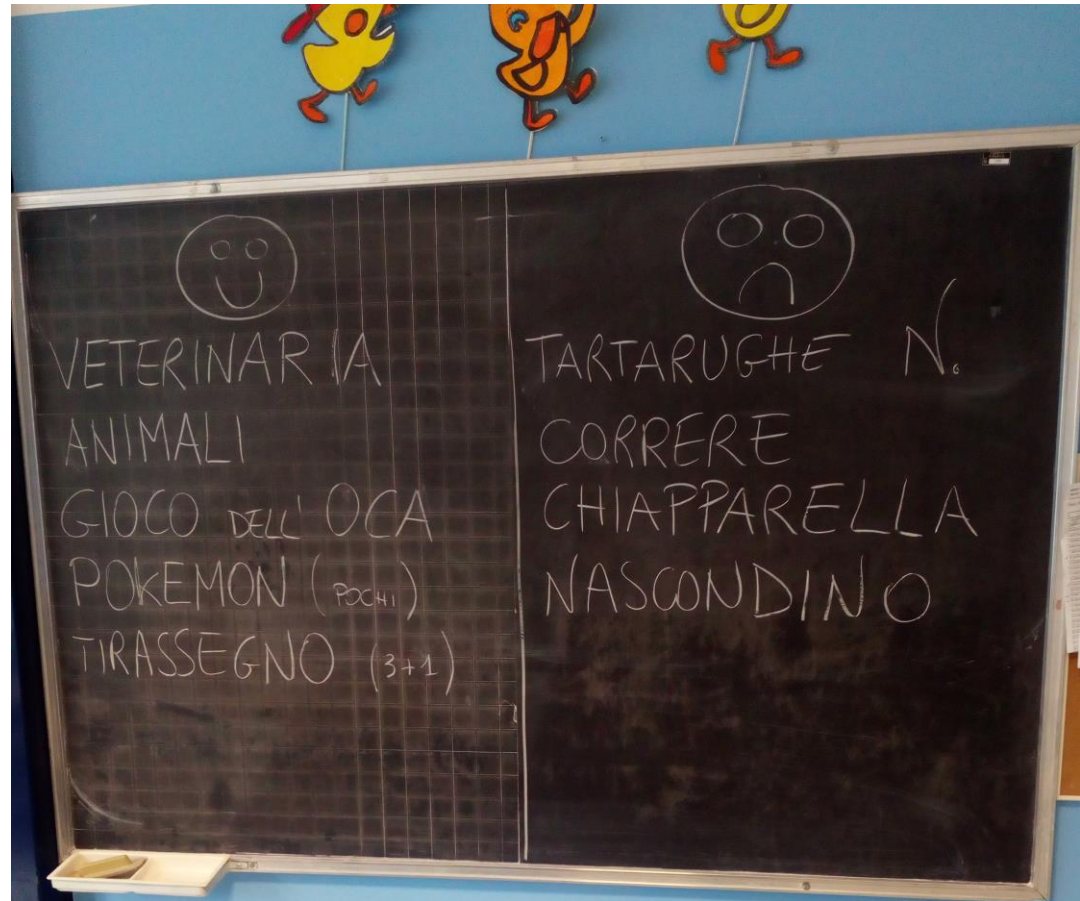 VETERINARIA
ANIMALI
GIOCO DELL'OCA
POKEMON (POCHI)
TIRASSEGNO (3+1)
TARTARUGHE N.
CORRERE
CHIAPPARELLA
NASCONDINO